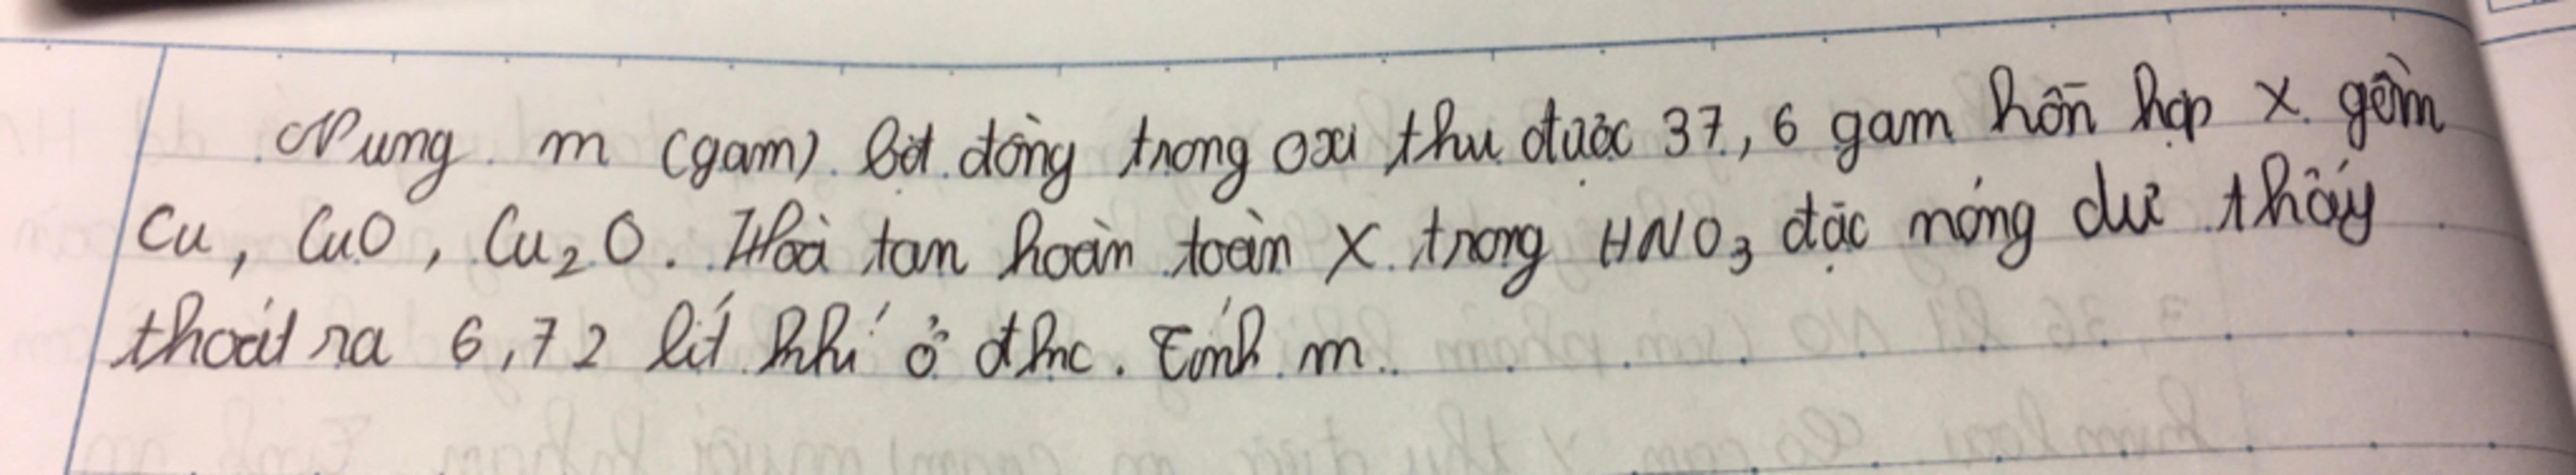 Nung m (gam) bột đồng trong oxi thu được 37,6 gam hỗn hợp X gồm
Cu, CuO, Cu2O. Hoà tan hoàn toàn X trong HNO3 đặc nóng dư thấy
thoát ra 6,72 lít khí ở đktc. Tính m.